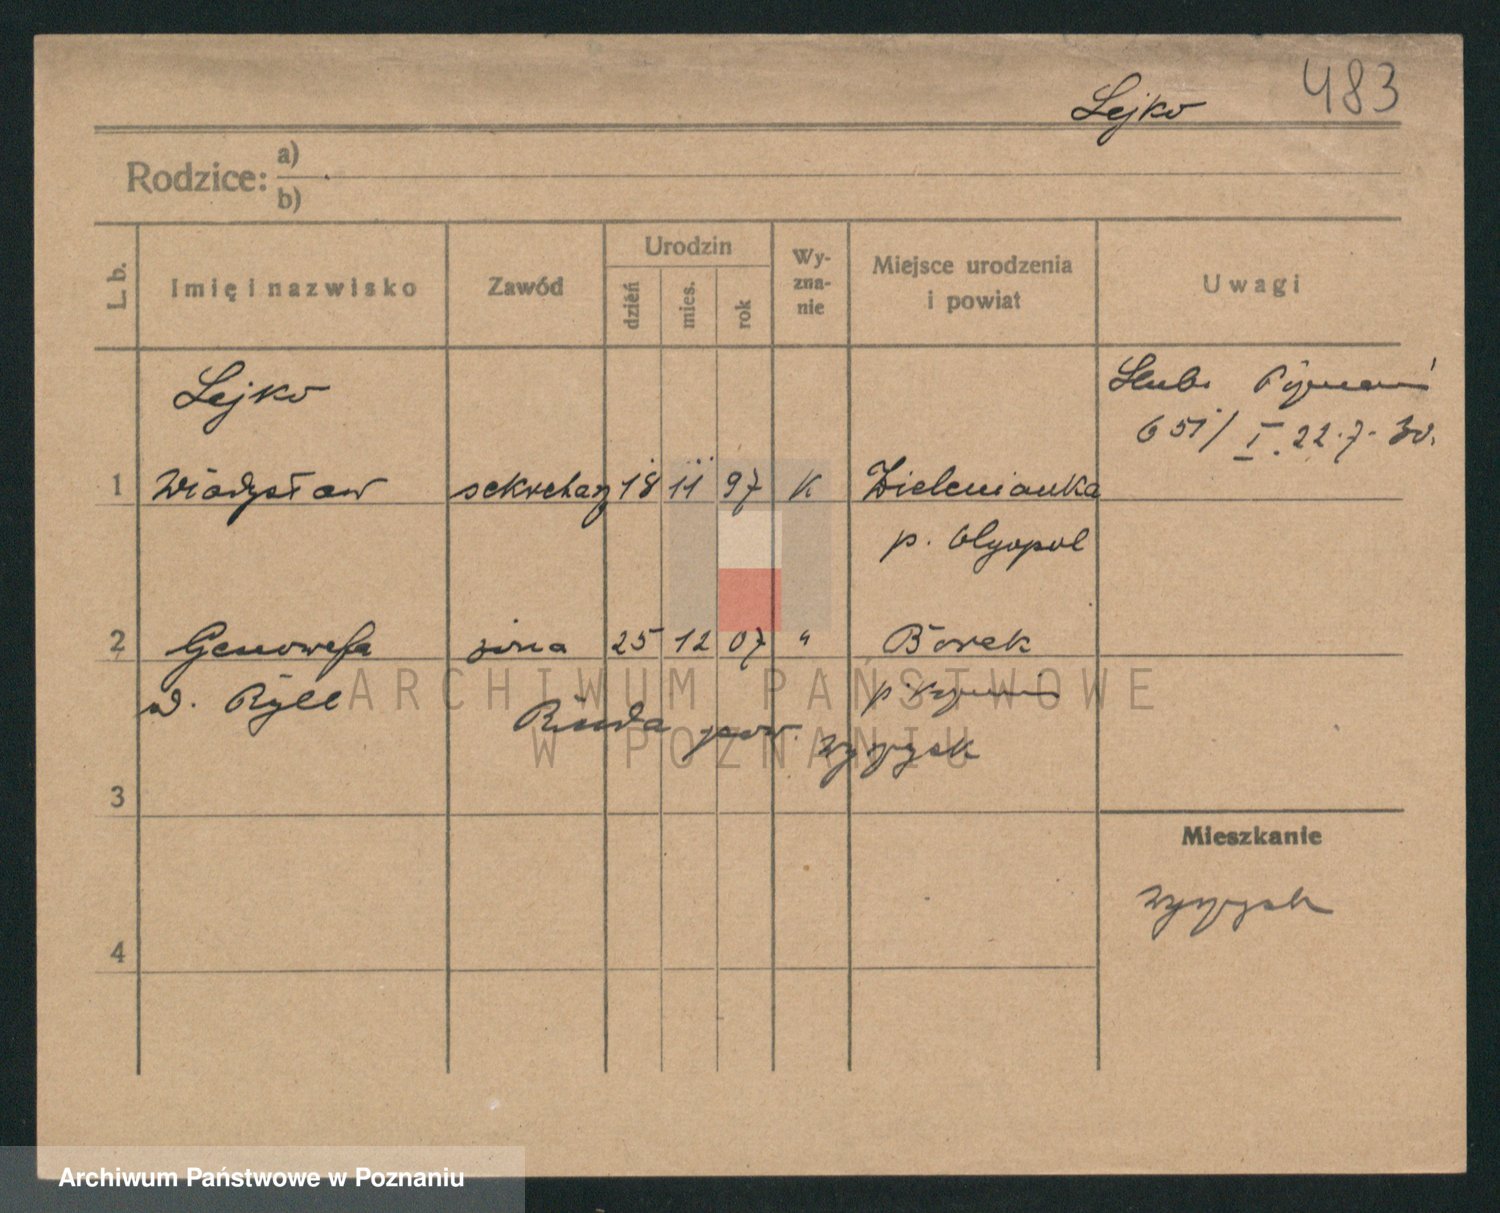 483
Lejko
Rodzice: a)
b)
L. b.
Imię i nazwisko
Zawód
Urodzin
dzień
mies.
rok
Wy-
zna-
nie
Miejsce urodzenia
i powiat
Uwagi
Lejko
Ślub Poznań
651/I. 22.7.30.
1 Władysław sekretarz 18 11 97 K Zielenianka
p. Olgopol
2 Genowefa żona 25 12 07 " Borek
d. Ryll
Ruda pow. Wyrzysk
3
Mieszkanie
Wyrzysk
4
ARCHIWUM PAŃSTWOWE
W POZNANIU
Archiwum Państwowe w Poznaniu